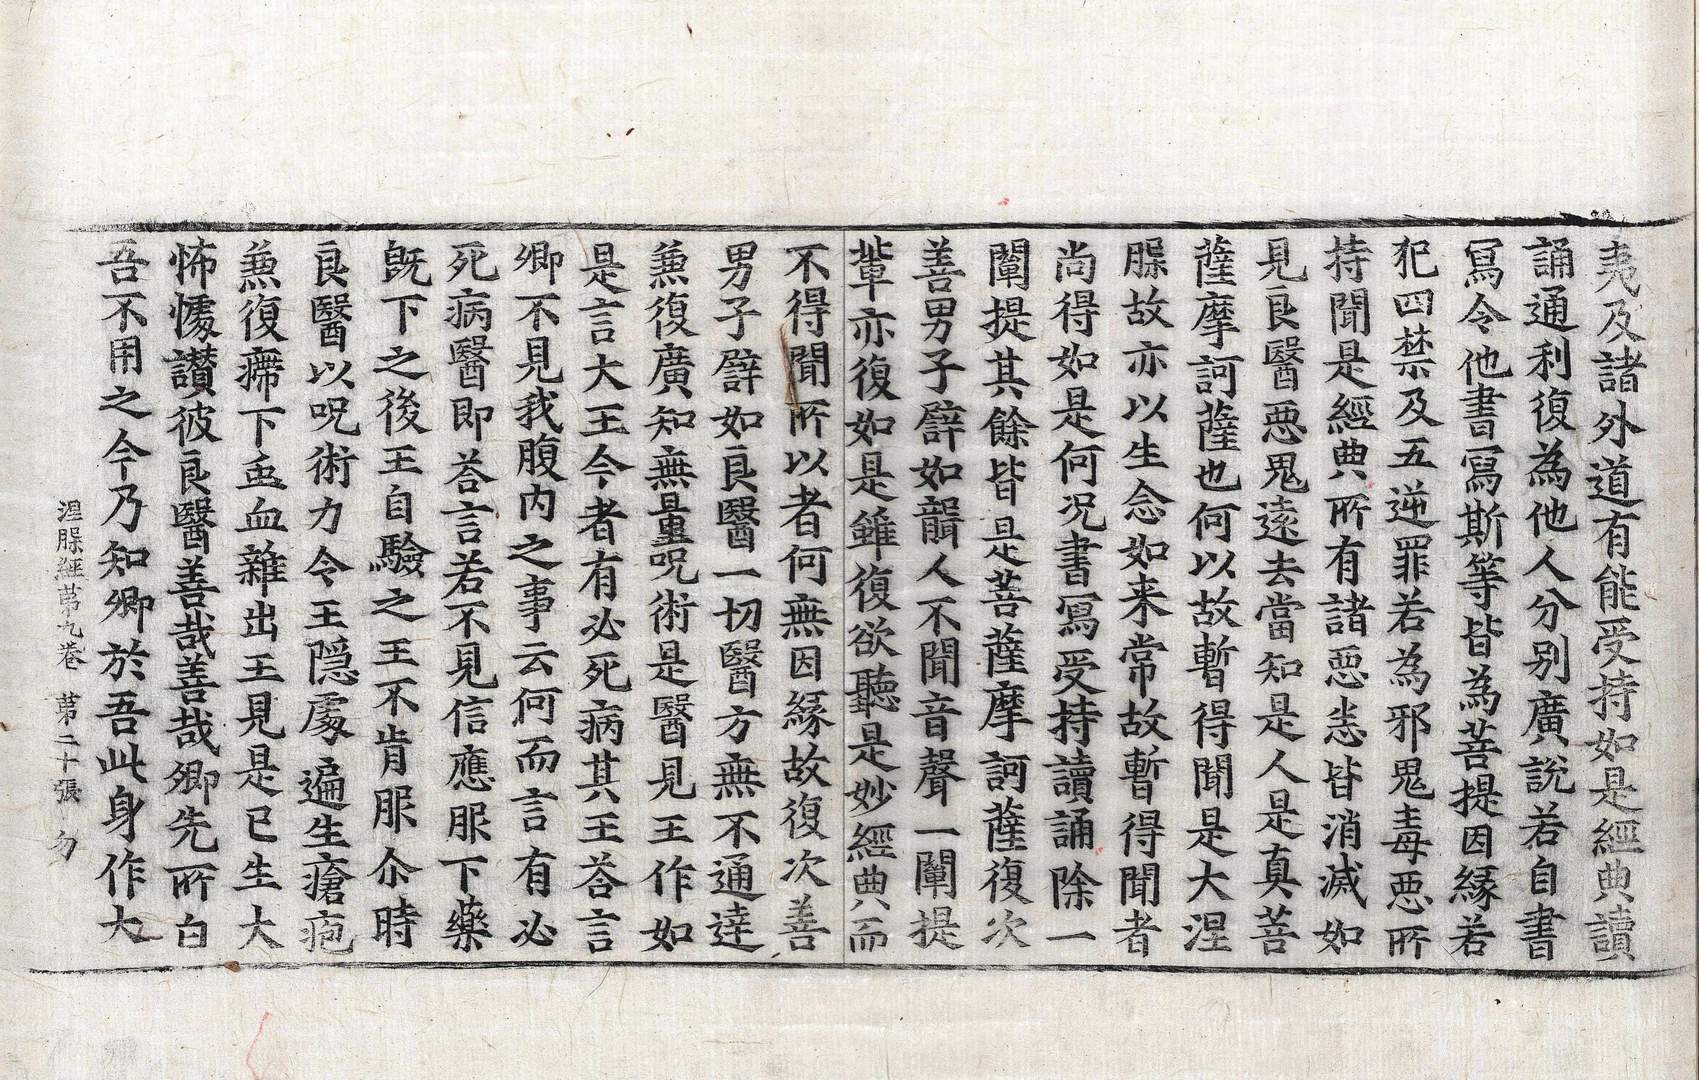 夷及諸外道有能受持如是經典讀
誦通利復為他人分别廣說若自書
寫令他書寫斯等皆為菩提因緣若
犯四禁及五逆罪若為邪鬼毒惡所
持聞是經典所有諸惡悉皆消滅如
見良醫惡鬼遠去當知是人是真菩
薩摩訶薩也何以故暫得聞是大涅
槃故亦以生念如来常故暫得聞者
尚得如是何况書寫受持讀誦除一
闡提其餘皆是菩薩摩訶薩復次
善男子譬如聾人不聞音聲一闡提
輩亦復如是雖復欲聽是妙經典而
不得聞所以者何無因緣故復次善
男子譬如良醫一切醫方無不通達
兼復廣知無量呪術是醫見王作如
是言大王今者有必死病其王荅言
卿不見我腹内之事云何而言有必
死病醫即荅言若不見信應服下藥
既下之後王自驗之王不肯服尒時
良醫以呪術力令王隱處遍生瘡疱
兼復㿃下虫血雜出王見是已生大
怖懅讃彼良醫善哉善哉卿先所白
吾不用之今乃知卿於吾此身作大
涅槃經第九卷 第二十張 勿